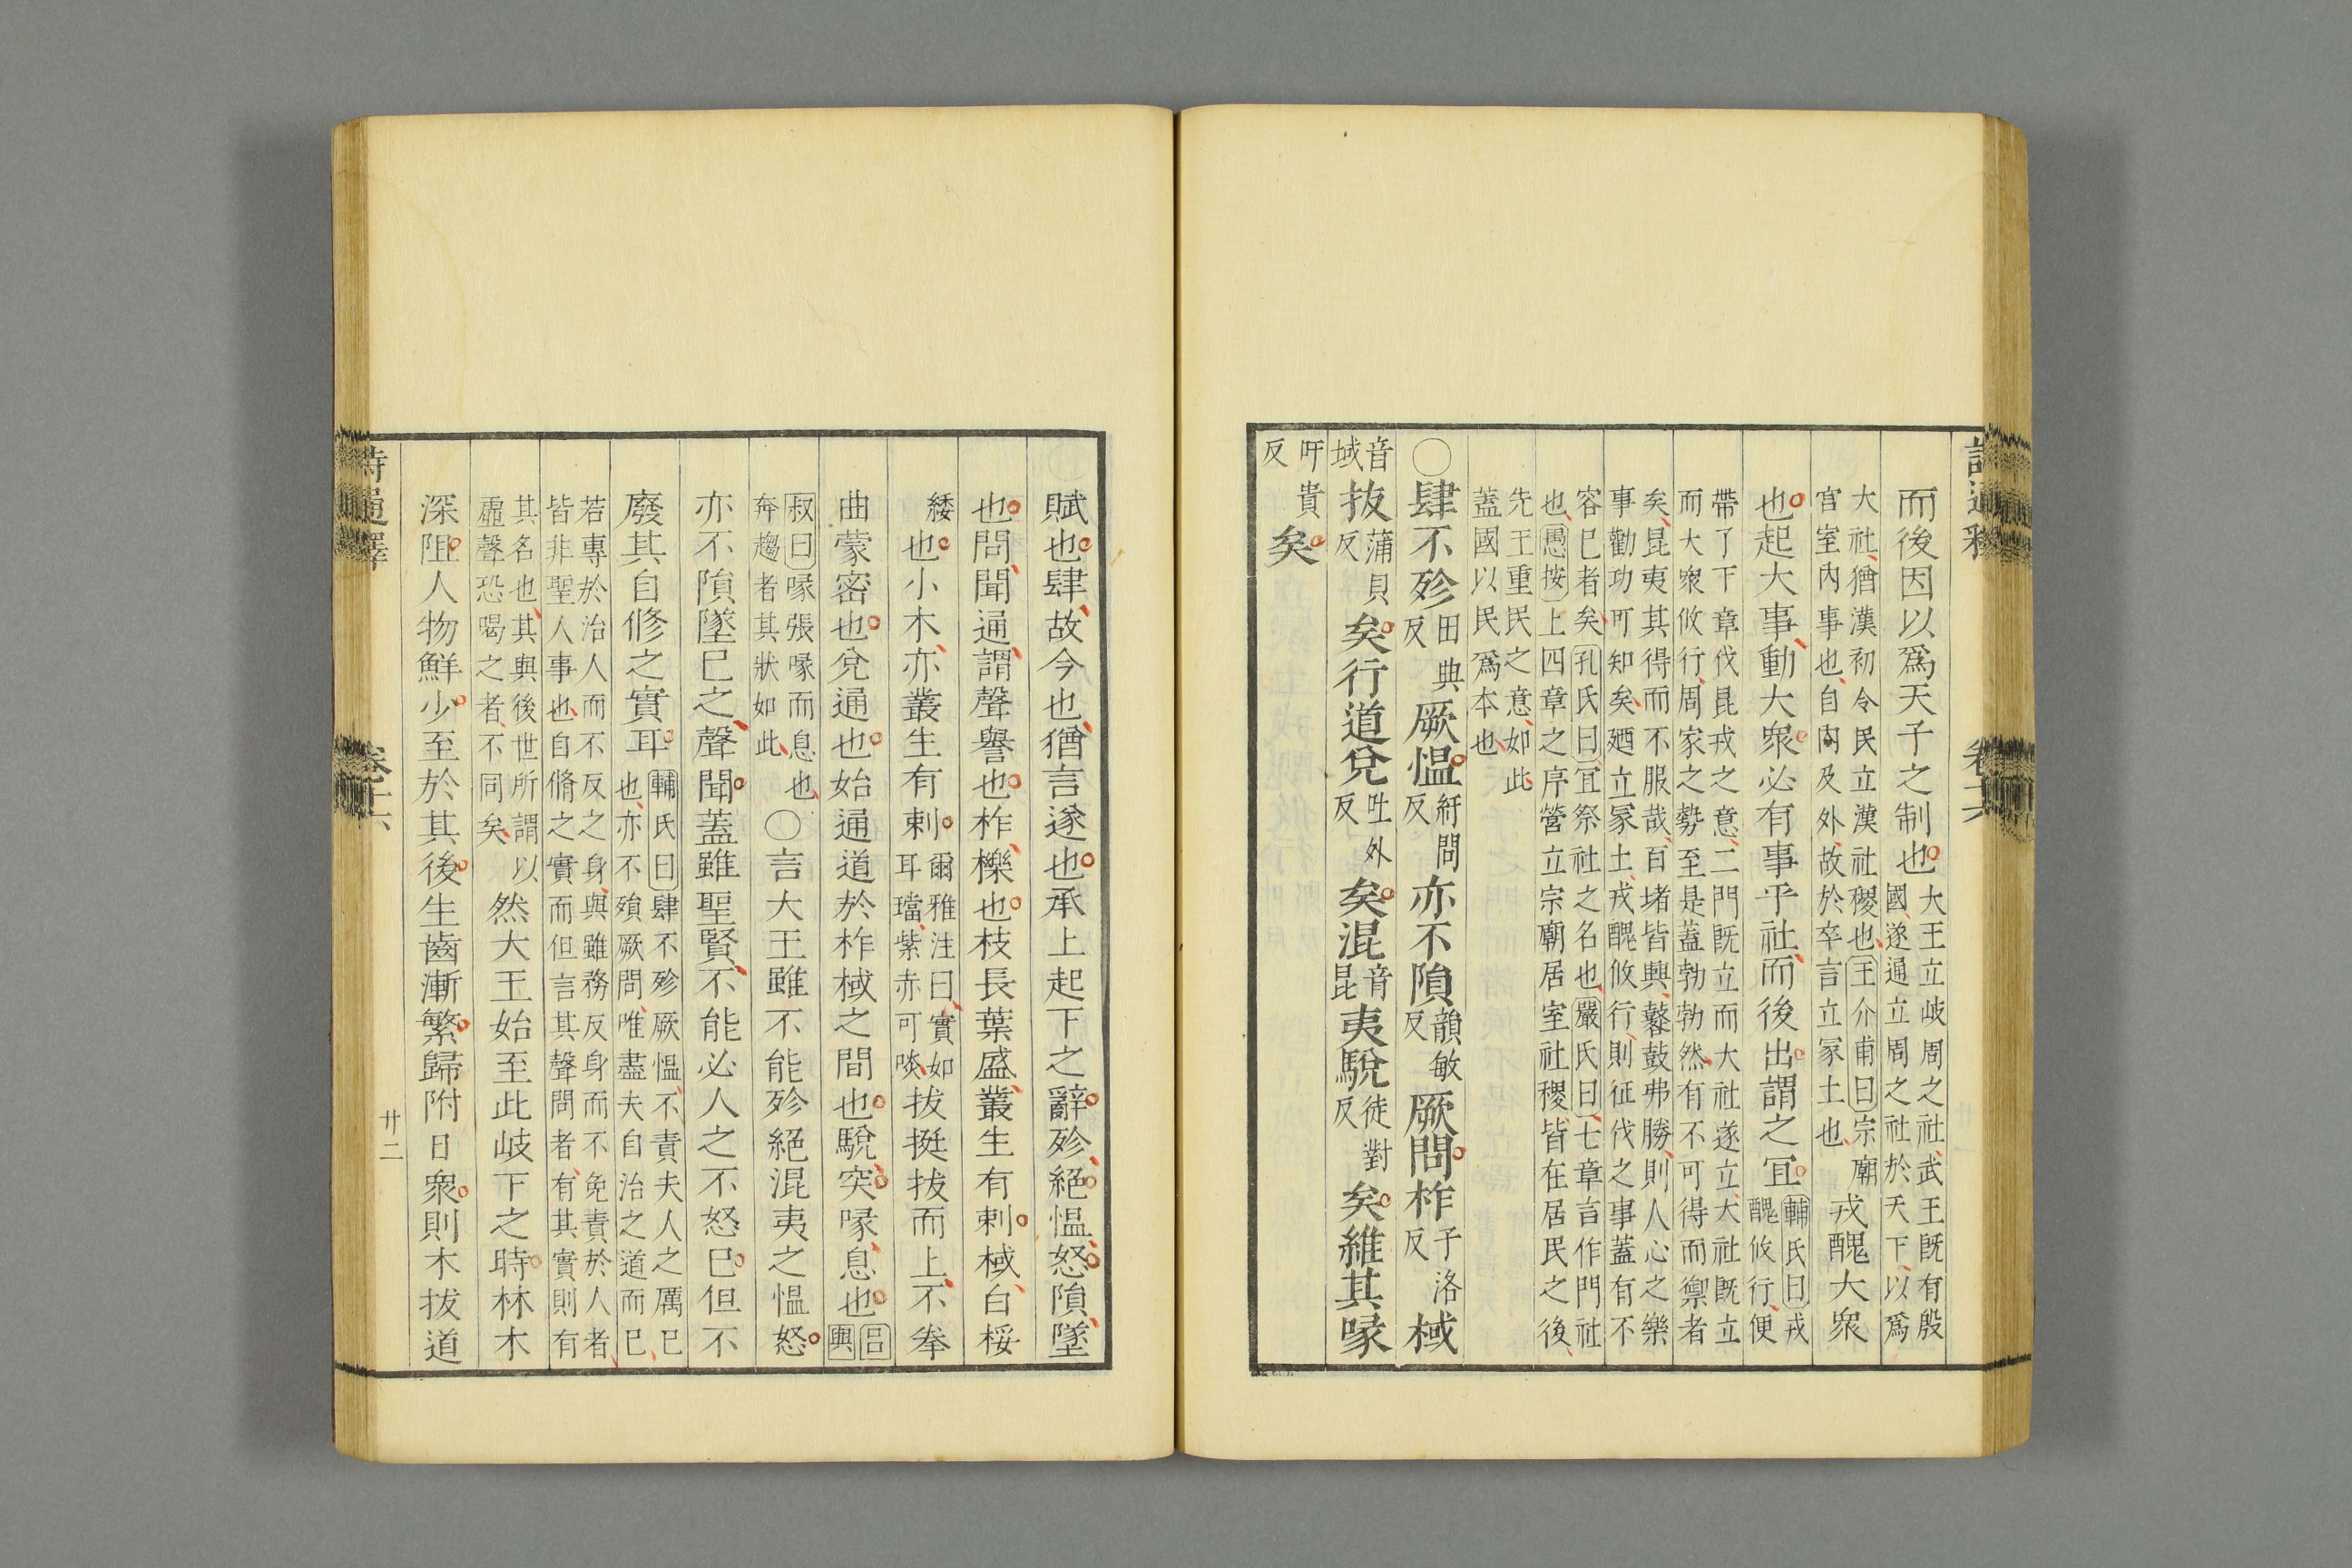 而後因以爲天子之制也大王立岐周之社武王既有殷國遂通立周之社於天下以爲
大社猶漢初令民立漢社稷也王介甫曰宗廟宮室內事也自內及外故於卒言立冢土也戎醜大衆
也起大事動大衆必有事乎社而後出謂之宜輔氏曰戎醜攸行便
帶了下章伐昆戎之意二門既立而大社遂立大社既立而大衆攸行周家之勢至是蓋勃勃然有不可得而禦者
矣昆夷其得而不服哉百堵皆興鼛鼓弗勝則人心之樂事勸功可知矣廼立冢土戎醜攸行則征伐之事蓋有不
容已者矣孔氏曰宜祭社之名也嚴氏曰七章言作門社也愚按上四章之序營立宗廟居室社稷皆在居民之後
先王重民之意如此蓋國以民爲本也
○肆不殄田典反厥慍紆問反亦不隕韻敏反厥問柞子洛反棫
音域拔蒲貝反矣行道兌吐外反矣混音昆夷駾徒對反矣維其喙
吁貴反矣
詩通釋
卷十六
賦也肆故今也猶言遂也承上起下之辭殄絕慍怒隕墜
也問聞通謂聲譽也柞櫟也枝長葉盛叢生有刺棫白桵
緌也小木亦叢生有刺爾雅注曰實如耳璫紫赤可啖拔挺拔而上不拳
曲蒙密也兌通也始通道於柞棫之間也駾突喙息也呂叔曰喙張喙而息也
奔趨者其狀如此○言大王雖不能殄絕混夷之慍怒
亦不隕墜已之聲聞蓋雖聖賢不能必人之不怒已但不
廢其自修之實耳輔氏曰肆不殄厥慍不責夫人之厲已也亦不殞厥問唯盡夫自治之道而已
若專於治人而不反之身與雖務反身而不免責於人者皆非聖人事也自脩之實而但言其聲問者有其實則有
其名也其與後世所謂以虛聲恐喝之者不同矣然大王始至此岐下之時林木
深阻人物鮮少至於其後生齒漸繁歸附日衆則木拔道
詩通釋
卷十六
廿二